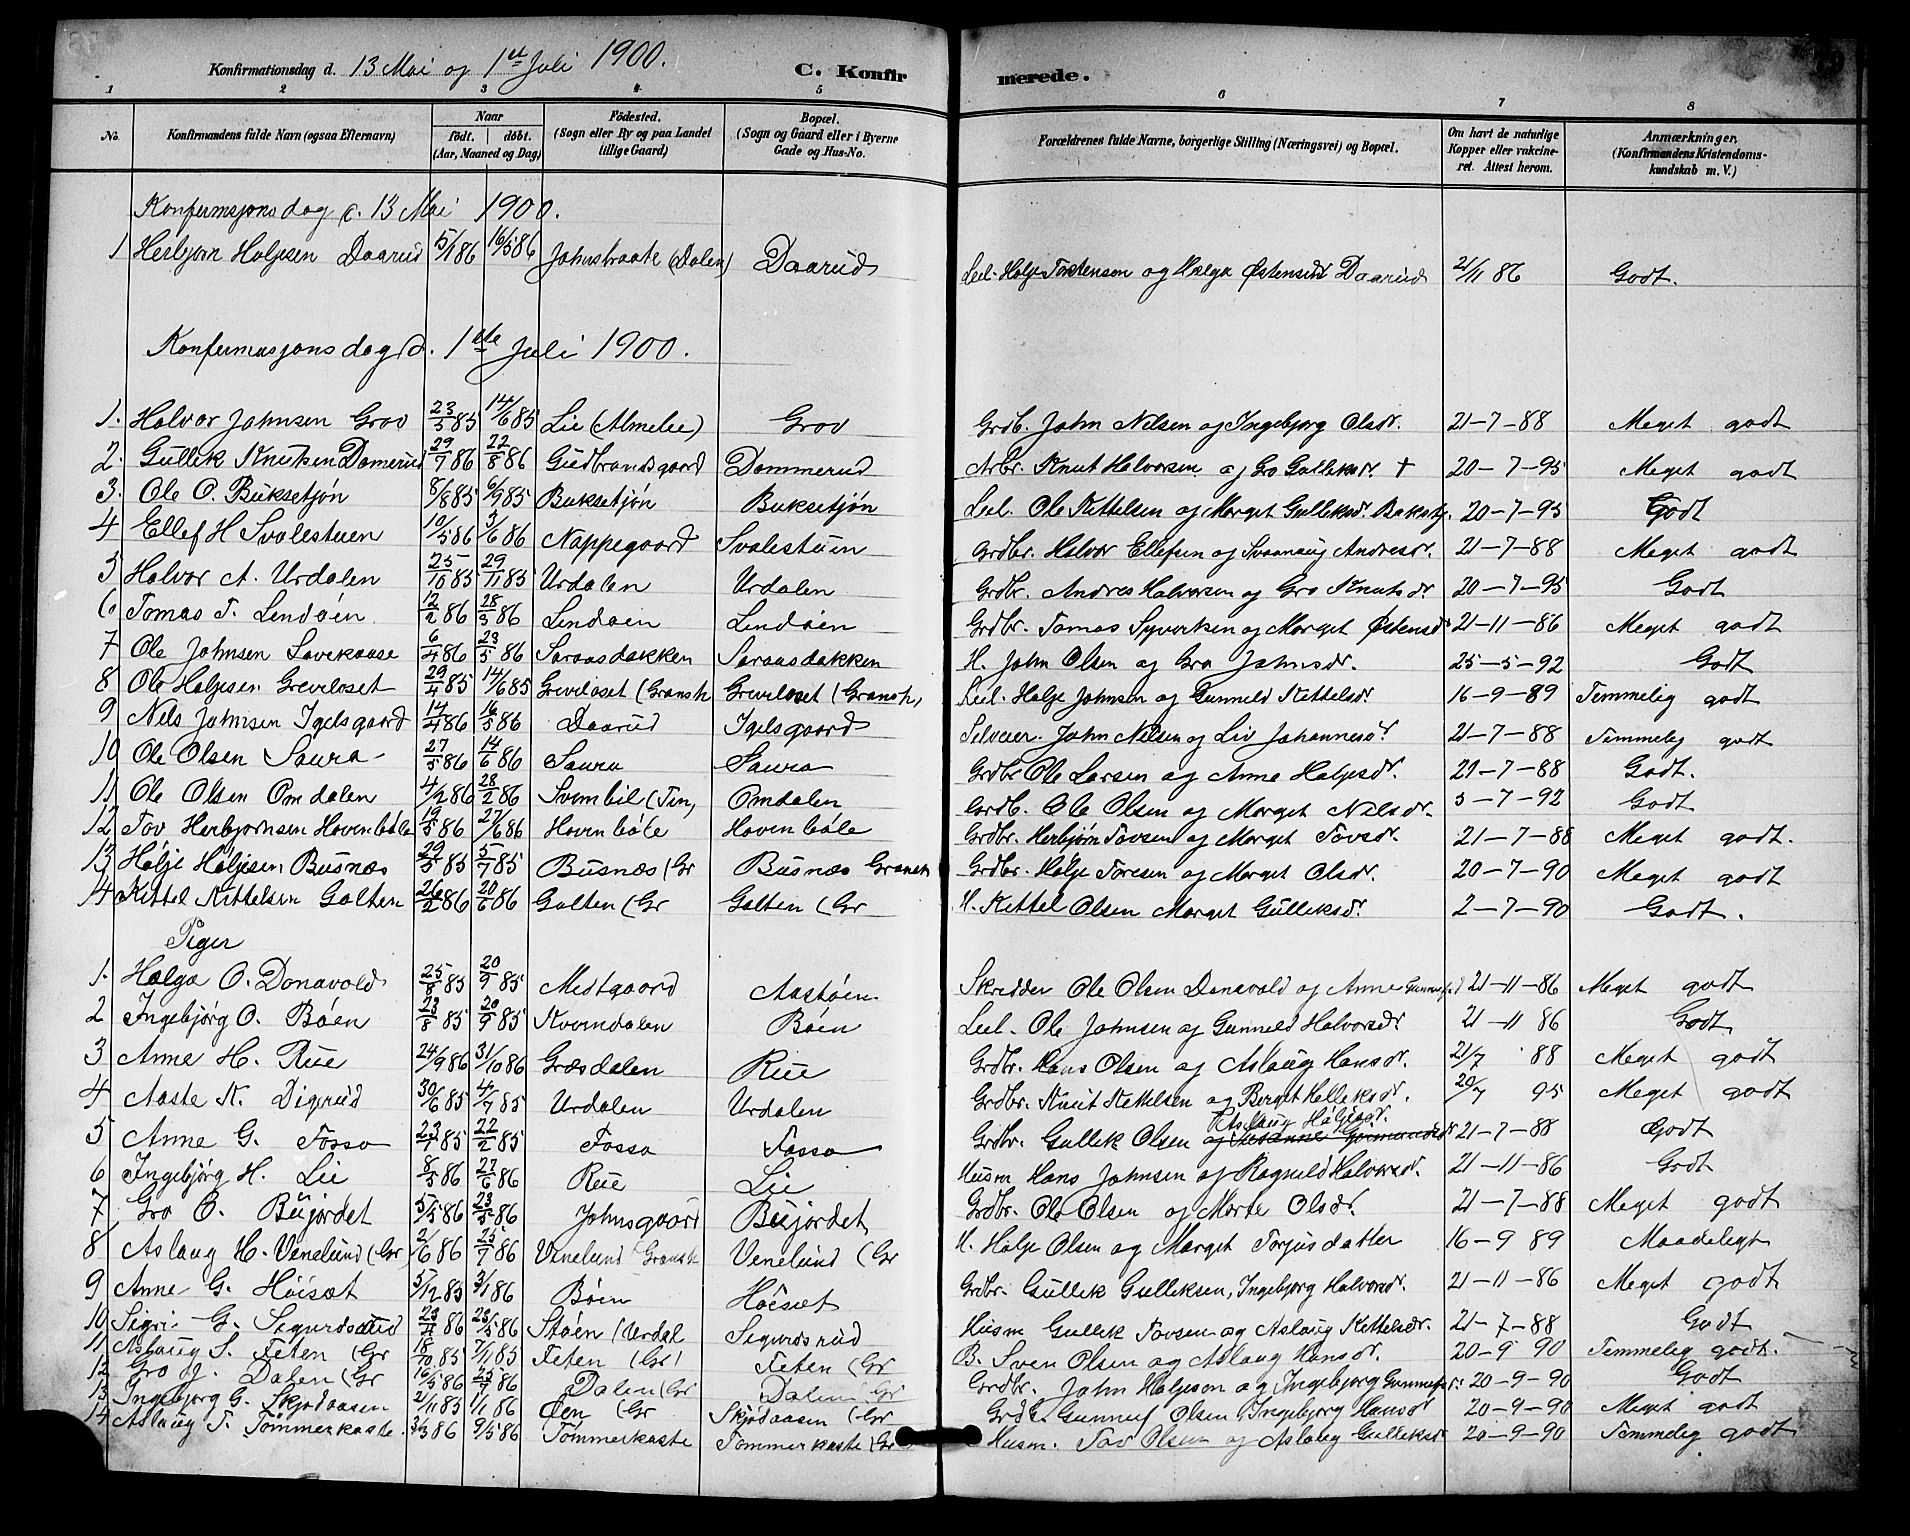 Konfirmationsdag d. 13 Mai og 1st Juli 1900.
C. Konfirmerede.
1 2 3 4 5 6 7 8
No. Konfirmandens fulde Navn (ogsaa Efternavn) Naar födt. döbt. (Aar, Maaned og Dag) Födested. (Sogn eller By og paa Landet tillige Gaard) Bopæl. (Sogn og Gaard eller i Byerne Gade og Hus-No. Forældrenes fulde Navne, borgerlige Stilling (Næringsvei) og Bopæl. Om havt de naturlige Kopper eller vakcineret. Attest herom. Anmærkninger, (Konfirmandens Kristendomskundskab m. V.)
Konfermsjonsdag d. 13 Mai 1900.
1 Herbjørn Holjesen Daarud 5/1 86 16/5 86 Johnstraate (Dalen) Daarud Leil. Holje Torstensen og Helga Østensdr Daarud 21/11 86 Godt.
Konfermasjonsdag d. 1ste Juli 1900.
1. Halvor Johnsen Grov 23/5 85 14/6 85 Lie (Almelie) Grov Grdb. John Nilsen og Ingebjørg Olsdr. 21-7-88 Meget godt
2. Gullik Knutsen Domerud 29/7 86 22/8 86 Gudbrandsgaard Dommerud Arbr. Knut Halvorsen og Gro Gulleksdr + 20-7-95 Meget godt
3. Ole O. Buksetjøn 8/8 85 6/9 85 Buksetjøn Buksetjøn Leil. Ole Kittelsen og Morget Gulleksdr. Bakstj. 20-7-95 Godt
4 Ellef H Svalestuen 10/5 86 3/6 86 Nappegaard Svalestuen Grdbr. Halvor Ellefsen og Svaanaug Andresdr. 21-7-88 Meget godt
5 Halvor A. Urdalen 25/10 85 29/11 85 Urdalen Urdalen Grdbr. Andres Halvorsen og Gro Knutsdr 20-7-95 Godt
6 Tomas T. Lendøen 12/2 86 28/3 86 Lendøen Lendøen Grdbr. Tomas Syvertsen og Morget Østensdr 21-11-86 Meget godt
7 Ole Johnsen Lovekaase 6/4 86 23/5 86 Soraasdakken Soraasdakken H. John Olsen og Gro Johnsdr. 25-5-92 Godt
8 Ole Holjesen Greveloset 29/4 85 14/6 85 Greveloset (Gransh Greveloset (Gransh, Leil. Holje Johnsen og Gunneld Kettelsdr 16-9-89 Temmelig godt
9 Nels Johnsen Igelsgaard 14/4 86 16/5 86 Daarud Igelsgaard Selveier. John Nilsen og Liv Johannesdr 21-7-88 Temmelig godt
10 Ole Olsen Saura 27/5 86 14/6 86 Saura Saura Grdbr Ole Larsen og Anne Holjesdr. 21-7-88 Godt.
11 Ole Olsen Omdalen 4/2 86 28/2 86 Svenbil (Tin, Omdalen Grdb. Ole Olsen og Morget Nilsdr. 5-7-92 Godt
12 Tov Herbjørnsen Hovenbøle 19/5 86 27/6 86 Hovenbøle Hovenbøle Grdbr. Herbjørn Tovsen og Morget Tovsdr. 21-7-88 Meget godt.
13 Hølje Høljesen Busnæs 29/5 85 5/7 85 Busnæs (Gr Busnæs Gransh Grdbr. Hølje Toresen og Morget Olsdr. 20-7-90 Meget godt
14 Kittel Kittelsen Golten 26/2 86 20/6 86 Golten (Gr Golten (Gr H. Kettel Olsen Morget Gulleksdr. 2-7-90 Godt.
Piger
1. Helga O. Donavold 25/8 85 20/9 85 Midtgaard Aastøen Skredder Ole Olsen Donavold og Anne 21-11-86 Meget godt
2 Ingebjörg O. Böen 23/8 85 20/9 85 Kverndalen Böen Leil. Ole Johnsen og Gunneld Halvorsdr 21-11 86 Godt
3 Anne H. Rue 24/9 86 31/10 86 Græsdalen Rue Grdbr. Hans Olsen og Aslaug Hansdr. 21/7 88 Meget godt
4 Aaste K. Digrud 30/6 85 4/7 85 Urdalen Urdalen Grdbr. Knut Kettelsen og Berget Helleksdr. 20/7 95 Meget godt
5 Anne G. Fosso 23/1 85 22/2 85 Fosso Fosso Grdbr. Gullik Olsen Aslaug Høljesdr. 21-7-88 Godt
6 Ingebjörg H. Lie 8/5 86 27/6 86 Rue Lie Husm Hans Johnsen og Ragnild Halvorsdr. 21-11-86 Godt
7 Gro O. Bujordet 5/5 86 23/5 86 Johnsgaard Bujordet Grdbr. Ole Olsen og Morte Olsdr. 21-7-88 Meget godt
8 Aslaug H. Venelund (Gr 2/6 86 25/7 86 Venelund (Gransh Venelund (Gr H. Holje Olsen og Marget Torjusdatter 16-9 89 Maadeligt
9 Anne G. Höisæt 5/12 85 3/1 86 Böen Höisæt Grdbr. Gullik Gulleksen, Ingebjorg Halvorsdr. 21-11-86 Meget godt
10 Sigri G. Sigurdsrud 23/4 86 23/5 86 Stöen (Urdal Sigurdsrud Husm Gullik Tovsen og Aslaug Kettelsdr. 21-7-88 Godt
11 Aslaug S. Feten (Gr 18/10 85 7/11 85 Feten (Gr) Feten (Gr B. Sven Olsen og Aslaug Hansdr. 20-9 90 Temmelig godt.
12 Gro J. Dalen (Gr 16/5 86 25/7 86 Dalen (Gr Dalen (Gr Grdbr. John Holjeson og Ingebjorg 20-9-90 Godt
13 Ingebjorg G. Skjödaasen 2/11 85 1/1 86 Öen (Gr Skjödaasen (Gr Grdbr. Gunnuf Olsen, Ingebjorg Hansdr 20-9-90 Meget godt
14 Aslaug T. Tömmerkaste 3/3 86 9/5 86 Tömmerkaste Tommerkaste (Gr Husm. Tov Olsen og Aslaug Gulleksdr 20-9-90 Temmelig godt